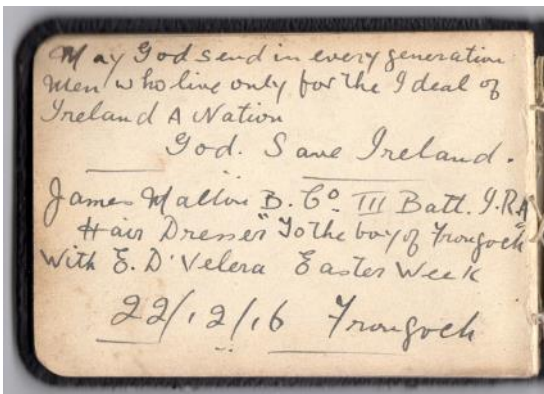 May God send in every generation
Men who live only for the Ideal of
Ireland A Nation
God. Save Ireland.
James Mallon B. Co. III Batt. I.R.A
"Hair Dresser" To the boy of Frongoch"
With E. D'Velera Easter Week
22/12/16 Frongoch